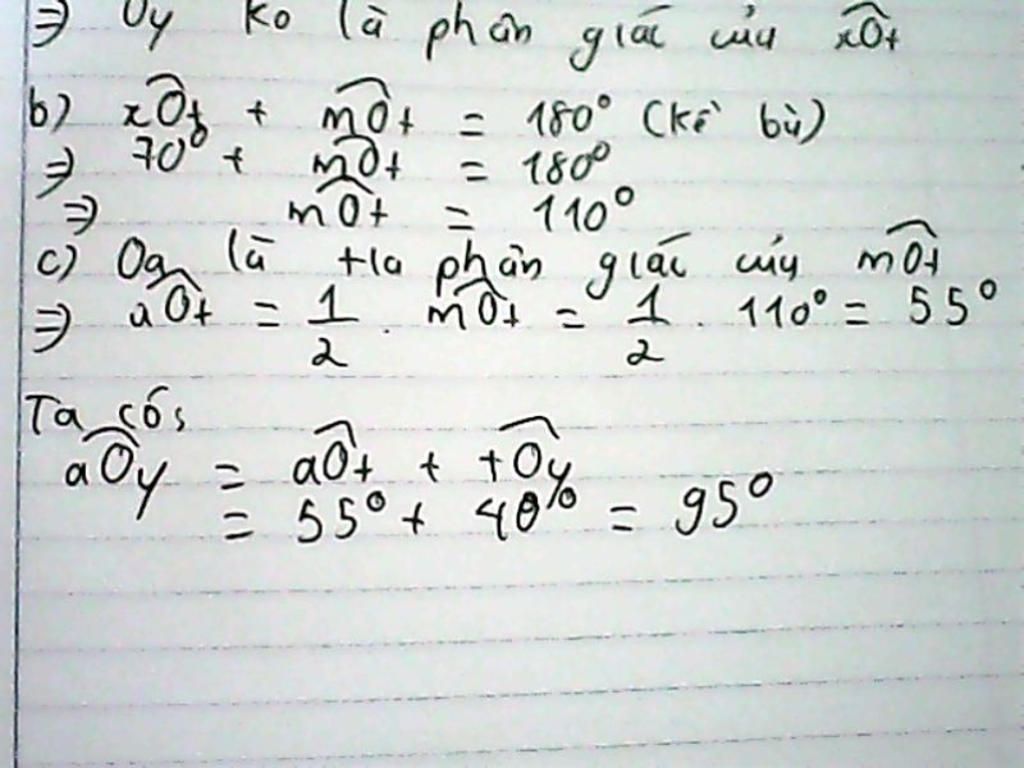 ⇒ Oy ko là phân giác của xOt
b) xOt + mOt = 180° (kề bù)
⇒ 70° + mOt = 180°
⇒ mOt = 110°
c) Oa là tia phân giác của mOt
⇒ aOt = 1/2 . mOt = 1/2 . 110° = 55°
Ta có:
aOy = aOt + tOy
= 55° + 40° = 95°